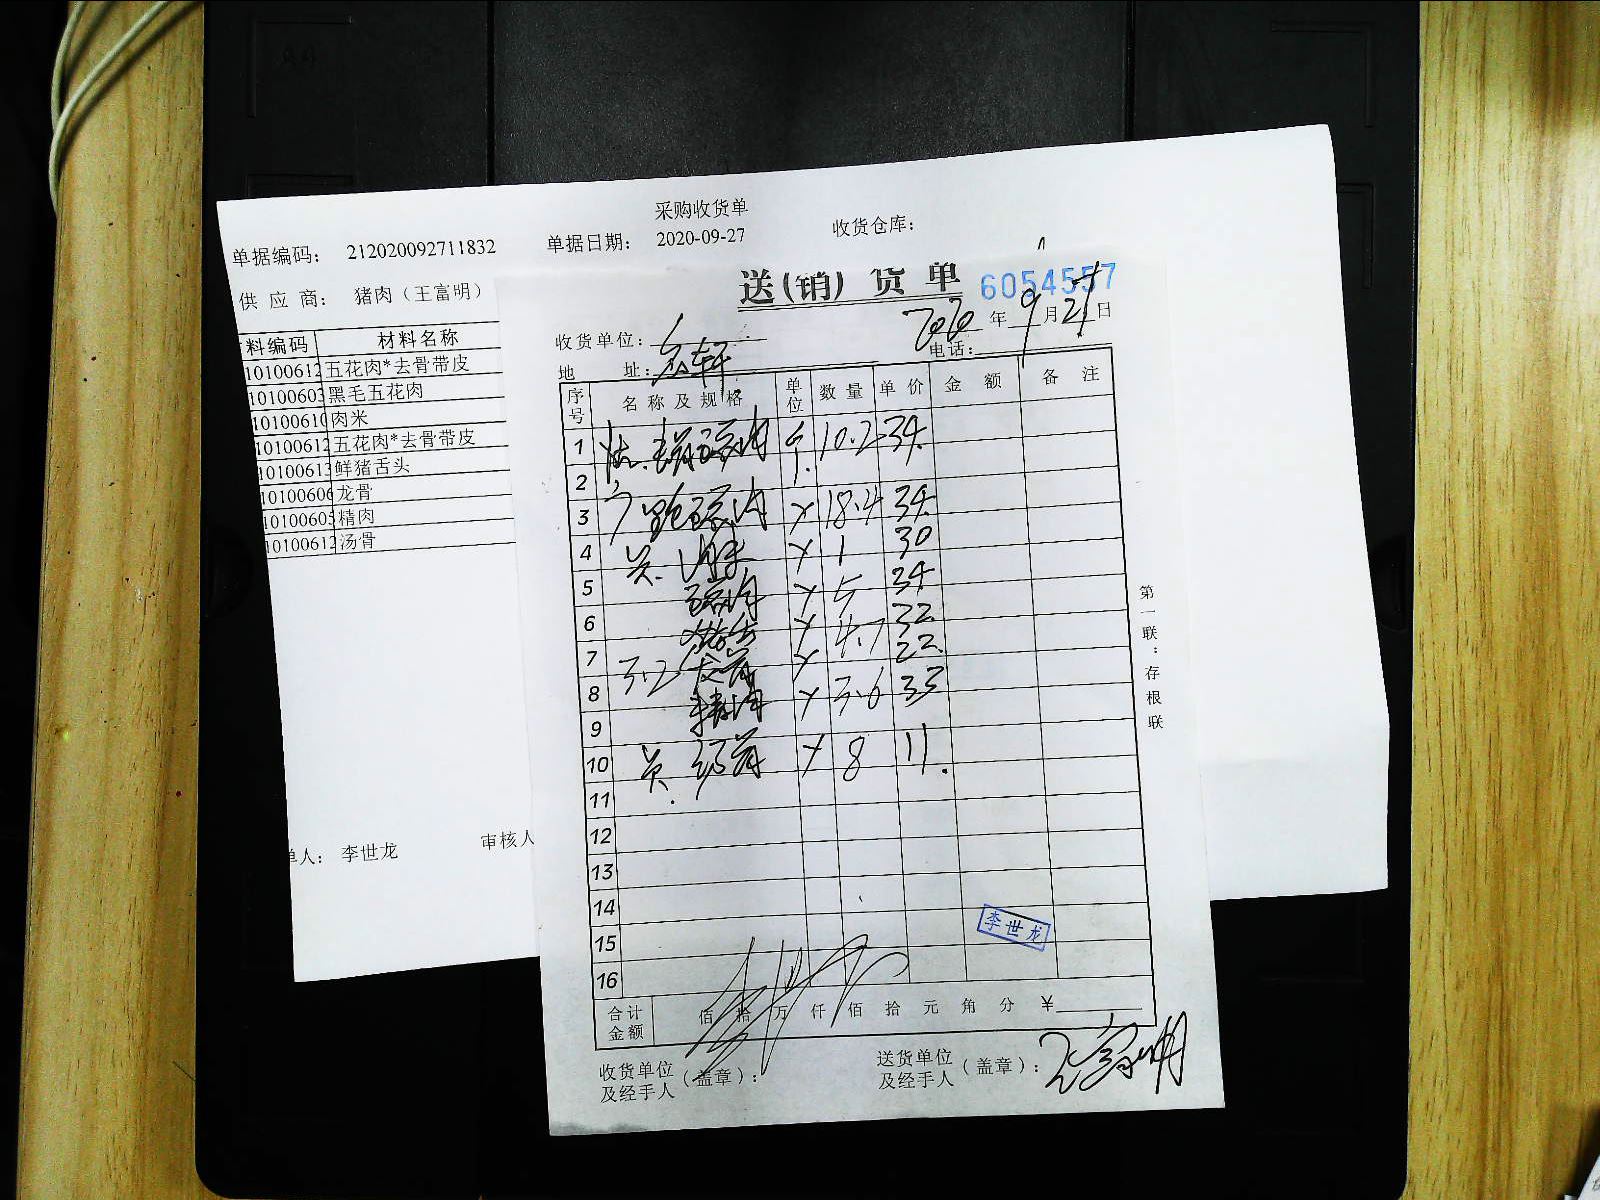 采购收货单
单据编码： 212020092711832 单据日期： 2020-09-27 收货仓库：
供应商： 猪肉（王富明）
料编码 材料名称
10100612 五花肉*去骨带皮
10100603 黑毛五花肉
10100610 肉米
10100612 五花肉*去骨带皮
10100613 鲜猪舌头
10100606 龙骨
10100605 精肉
10100612 汤骨
单人： 李世龙 审核人
送(销)货单 6054557
2020 年 9 月 27 日
收货单位：
地 址： 电话：
序号 名称及规格 单位 数量 单价 金额 备注
1 五花肉 10.2 34
2
3 五花肉 18.4 34
4 1 30
5 五花肉 5 34
6 4.7 32
7 3.2 龙骨 22
8 精肉 3.6 33
9
10 汤骨 8 11
11
12
13
14
15
16
李世龙
合计金额 佰 拾 万 仟 佰 拾 元 角 分 ¥
收货单位及经手人（盖章）： 送货单位及经手人（盖章）： 王富明
第一联：存根联